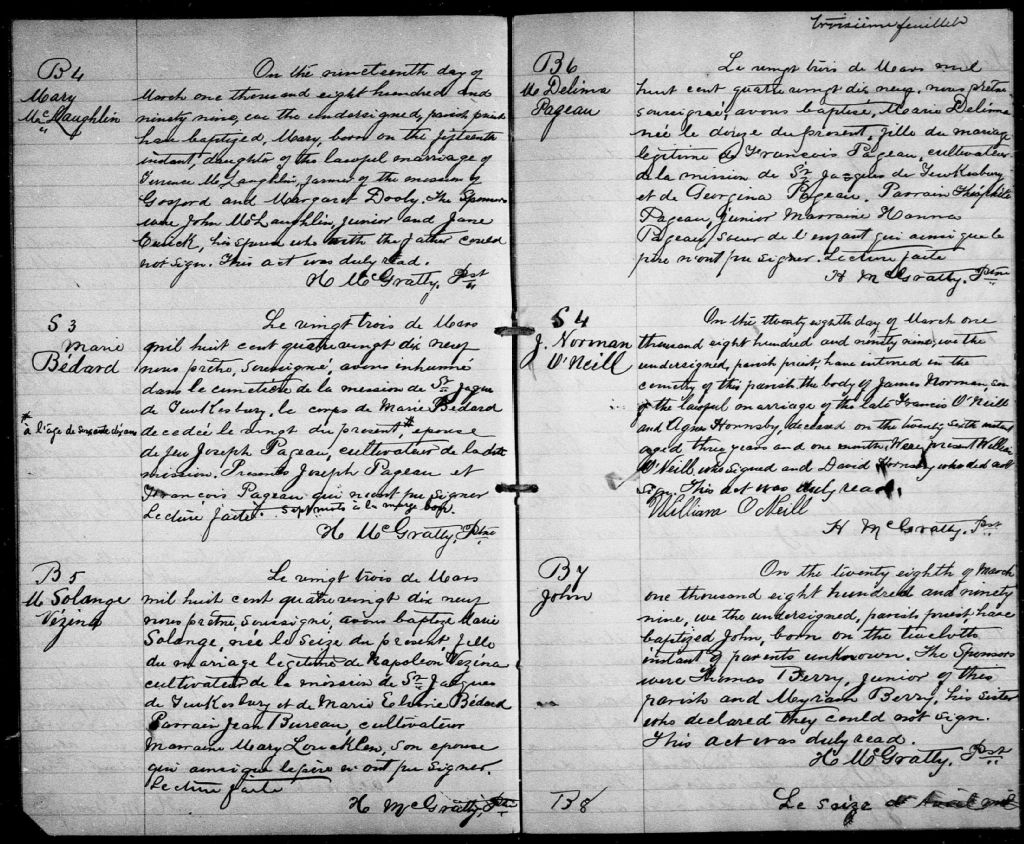 B4
Mary
McLaughlin
"
On the nineteenth day of
March one thousand eight hundred and
ninety nine, we the undersigned, parish priest
have baptized, Mary, born on the fifteenth
instant, daughter of the lawful marriage of
Terence McLaughlin, farmer of the mission of
Gosford and Margaret Dooly. The Sponsors
were John McLaughlin, junior and Jane
Cusick, his spouse who with the father could
not sign. This act was duly read.
H McGratty, Pst
S3
Marie
Bédard
* à l'age de soixante dix ans
Le vingt trois de Mars
mil huit cent quatre vingt dix neuf
nous prêtre, soussigné, avons inhumé
dans le cimetière de la mission de St Jaques
de Tewkesbury, le corps de Marie Bédard
decedée le vingt du present,* epouse
de feu Joseph Pageau, cultivateur de la dite
mission. Presents Joseph Pageau et
François Pageau qui n'ont pu signer
Lecture faite. Sept mots à la marge bon.
H McGratty, Ptre
B5
M Solange
Vézina
Le vingt trois de Mars
mil huit cent quatre vingt dix neuf
nous prêtre soussigné, avons baptize Marie
Solange, née le seize du present, fille
du mariage legitime de Napoleon Vezina
cultivateur de la mission de St Jacques
de Tewkesbury et de Marie Bédard
Parrain Jean Bureau, cultivateur
Marraine Mary Loucklen, son epouse
qui ainsi que le père n'ont pu signer.
Lecture faite
H McGratty, Ptre
troisième feuillet
B6
M Delima
Pageau
Le vingt trois de Mars mil
huit cent quatre vingt dix neuf, nous prêtre
soussigné, avons baptisé, Marie Delima
née le douze du present, fille du mariage
legitime de Francois Pageau, cultivateur
de la mission de St Jacques de Tewkesbury
et de Georgina Pageau. Parrain Théophile
Pageau, junior Marraine Hanna
Pageau, soeur de l'enfant qui ainsi que le
père n'ont pu signer. Lecture faite
H McGratty, Ptre
S4
J. Norman
O'Neill
On the twenty eighth day of March one
thousand eight hundred and ninety nine, we the
undersigned, parish priest, have interred in the
cemetry of this parish the body of James Norman, son
of the lawful marriage of the late Francis O'Neill
and Agnes Hornsby, deceased on the twenty sixth instant
aged three years and one month. Were present William
O'Neill who signed and David Hornsby who did not
sign. This act was duly read.
William O'Neill
H McGratty. Pst
B7
John
On the twenty eighth of March
one thousand eight hundred and ninety
nine, we the undersigned, parish priest have
baptized John, born on the twelfth
instant of parents unknown. The Sponsors
were Thomas Berry, junior of this
parish and Meyriam Berry, his sister
who declared they could not sign.
This act was duly read.
H McGratty, Pst
B8
Le seize d'Avril mil